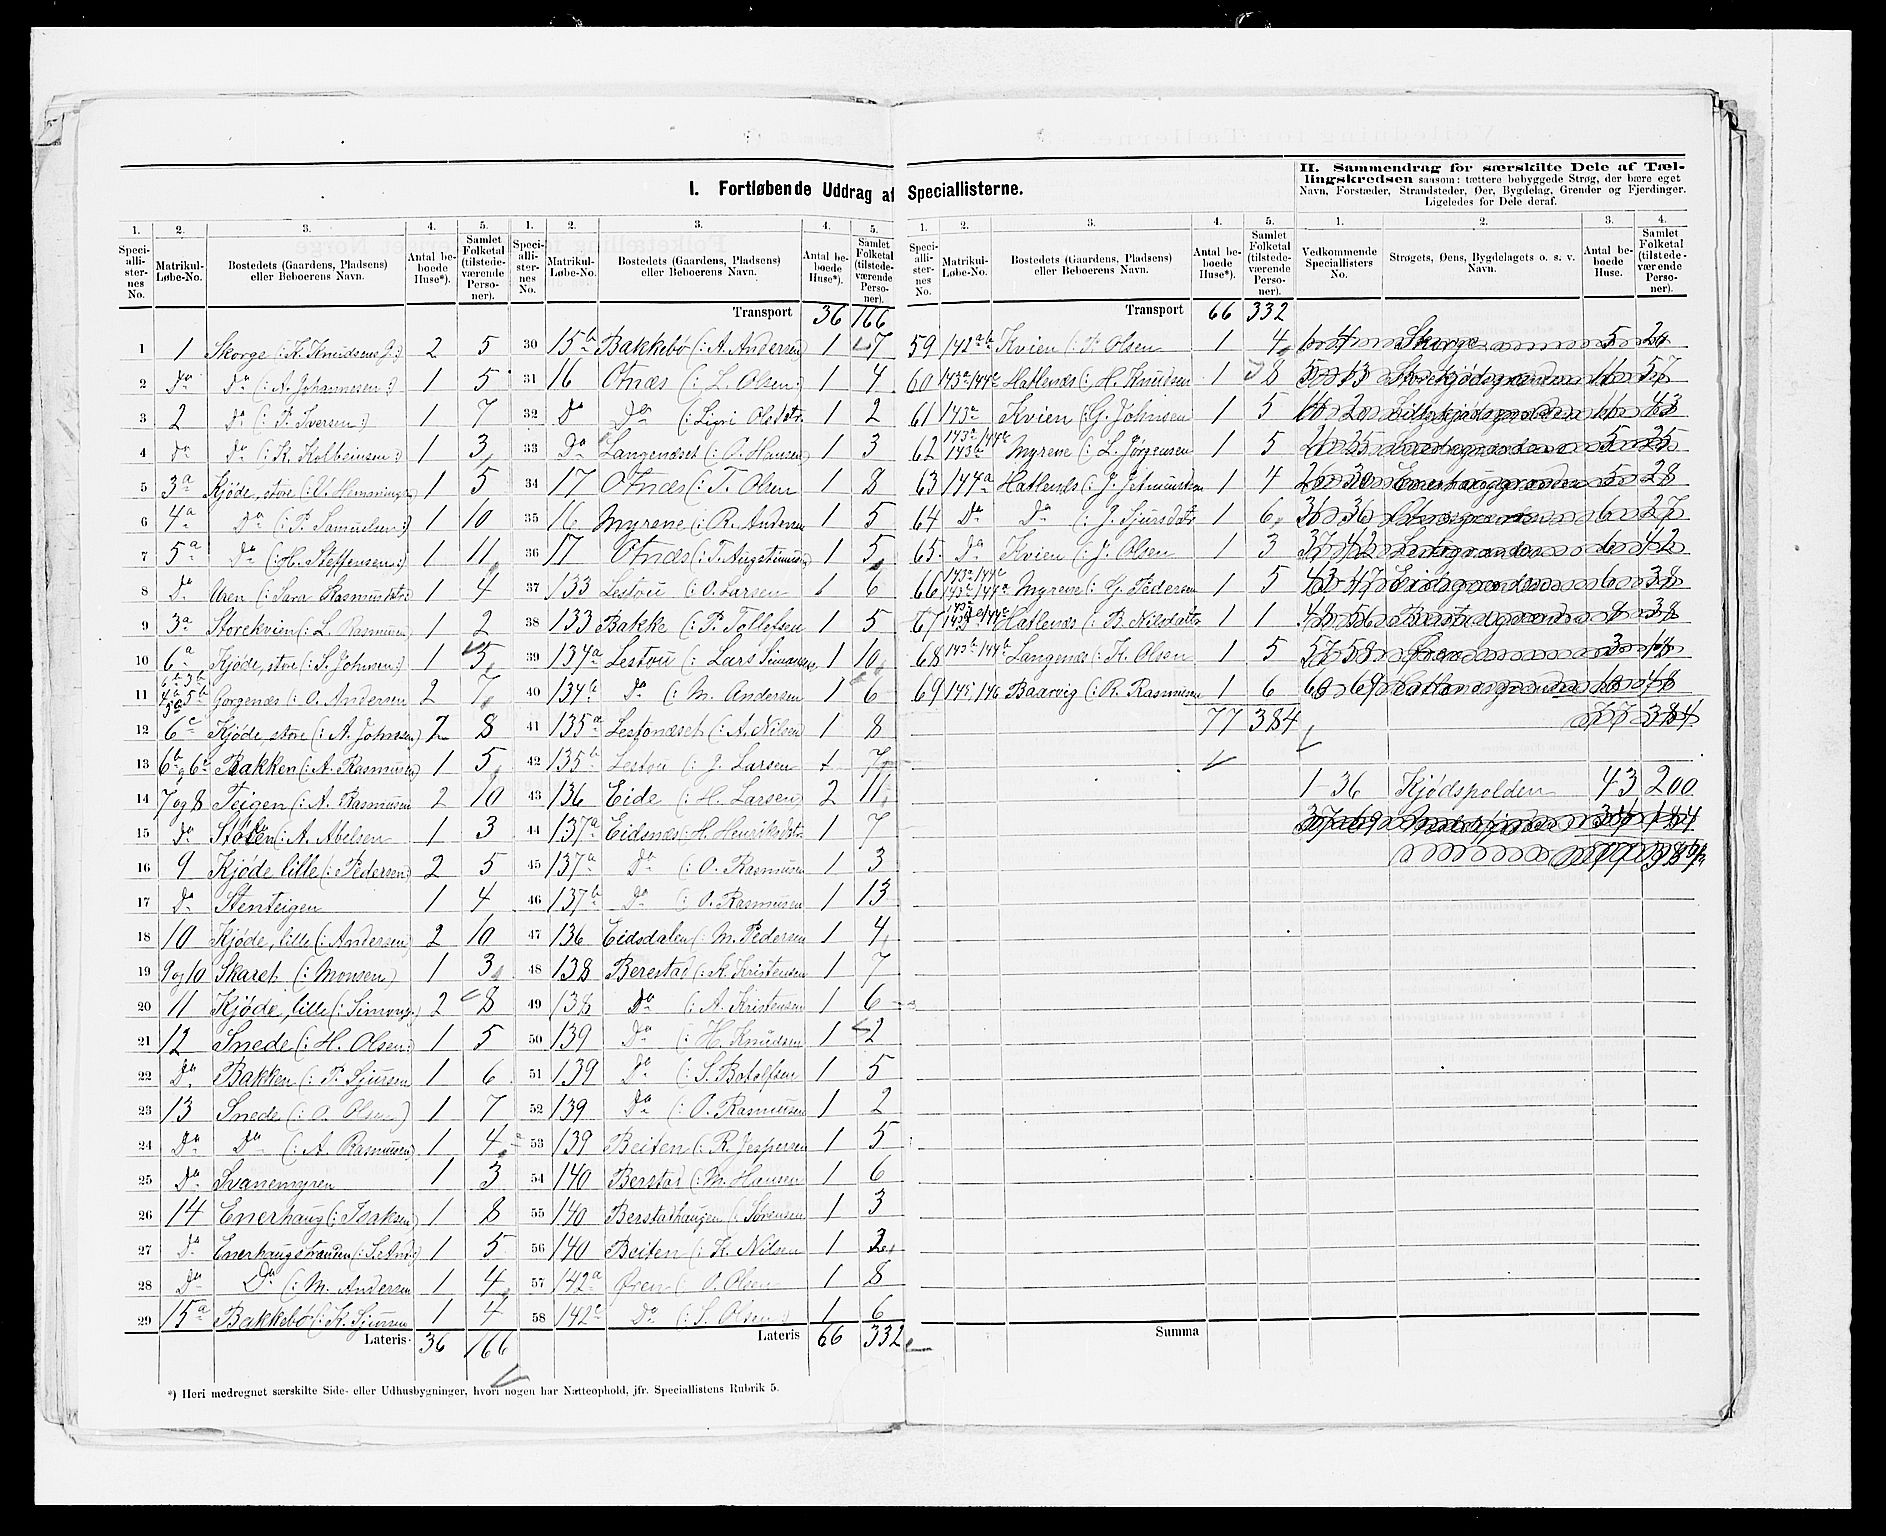 I. Fortløbende Uddrag af Speciallisterne.
II. Sammendrag for særskilte Dele af Tællingskredsen saasom: tættere bebyggede Strøg, der bære eget
Navn, Forstæder, Strandsteder, Øer, Bygdelag, Grender og Fjerdinger.
Ligeledes for Dele deraf.
1. 2. 3. 4. 5.
Speciallisternes No. Matrikul-Løbe-No. Bostedets (Gaardens, Pladsens) eller Beboerens Navn. Antal beboede Huse*). Samlet Folketal (tilstedeværende Personer).
1 1 Skorge (: K. Knudsen 2 5
2 Do Do (: A. Johannesen :) 1 5
3 2 Do (: P. Iversen :) 1 7
4 Do Do (: K. Kolbeinsen :) 1 3
5 3a Kjøde, store (: 1 5
6 4a Do (: P. Samuelsen :) 1 10
7 5a Do (: H. Steffensen :) 1 11
8 Do Uren (: Sara Rasmusdtr 1 4
9 3a Storekvien (: L. Rasmusen 1 2
10 6a Kjøde, store (: S. Johnsen :) 1 5
11 6b 3b 4b 5b Gorgenæs (: O. Andersen 2 7
12 6c Kjøde, store (: A. Johnsen) 2 8
13 Bakken (: A. Rasmusen) 1 5
14 7 og 8 Teigen (: A. Rasmusen 2 10
15 Do Støten (: A. Abelsen 1 3
16 9 Kjøde lille (: Pedersen) 2 5
17 Do Stenteigen 1 4
18 10 Kjøde, lille (: Andersen) 2 10
19 9 og 10 Skaret (: Monsen) 1 3
20 11 Kjøde, lille (: Simons.) 2 8
21 12 Snede (: H. Olsen :) 1 5
22 Do Bakken (: P. Sjursen 1 6
23 13 Snede (: O. Olsen) 1 7
24 Do Do (: A. Rasmusen) 1 4
25 Do Svanemyren 1 3
26 14 Enerhaug (: Isaksen) 1 8
27 Do Enerhaugstranden (: S. And.) 1 5
28 Do Do (: M. Andersen 1 4
29 15a Bakkebø (: K. Sjursen 1 4
Lateris 36 166
1. 2. 3. 4. 5.
Speciallisternes No. Matrikul-Løbe-No. Bostedets (Gaardens, Pladsens) eller Beboerens Navn. Antal beboede Huse*). Samlet Folketal (tilstedeværende Personer).
Transport 36 166
30 15b Bakkebø (: A. Andersen 1 7
31 16 Otnæs (: L. Olsen :) 1 4
32 Do Do (: Ligri Olsdtr. 1 2
33 Do Langenæset (: O. Hansen 1 3
34 17 Otnæs (: T. Olsen 1 8
35 16 Myrene (: R. Andersen 1 5
36 17 Otnæs (: T. 1 5
37 133 Lestou (: O. Larsen 1 6
38 133 Bakke (: P. Tollefsen 1 5
39 134a Lestou (: Lars Simonsen 1 10
40 134b Do (: M. Andersen 1 6
41 135a Lestonæset (: A. Nilsen 1 8
42 135b Lestou (: J. Larsen 1 7
43 136 Eide (: H. Larsen 2 11
44 137a Eidsnæs (: H. Henriksdtr 1 7
45 137a Do (: O. Rasmusen 1 3
46 137b Do (: O. Rasmusen 1 13
47 136 Eidsdalen (: M. Pedersen 1 4
48 138 Berestad (: K. Kristensen 1 7
49 138 Do (: A. Kristensen 1 6
50 139 Do (: H. Knudsen 1 2
51 139 Do (: S. Botolfsen 1 5
52 139 Do (: O. Rasmusen 1 2
53 139 Beiten (: R. Jespersen 1 5
54 140 Berstad (: M. Hansen 1 6
55 140 Berstadhaugen (: Sørensen 1 3
56 140 Beiten (: K. Nilsen 1 2
57 142a Øren (: O. Olsen 1 8
58 142c Do (: S. Olsen :) 1 6
Lateris 66 332
*) Heri medregnet særskilte Side- eller Udhusbygninger, hvori nogen har Natteophold, jfr. Speciallistens Rubrik 5.
1. 2. 3. 4. 5.
Speciallisternes No. Matrikul-Løbe-No. Bostedets (Gaardens, Pladsens) eller Beboerens Navn. Antal beboede Huse*). Samlet Folketal (tilstedeværende Personer).
Transport 66 332
59 142b Kvien (: P. Olsen 1 4
60 143a 144c Hatlenæs (: H. Knudsen 1 8
61 143a Kvien (: G. Johnsen 1 5
62 Myrene (: L. Jørgensen 1 5
63 144a Hatlenæs (: J. 1 4
64 Do Do (: J. Sjursdtr 1 6
65 Do Kvien (: J. Olsen 1 3
66 Myrene (: G. Pedersen 1 5
67 Hatlenæs (: B. Nilsdatter 1 1
68 143b 144b Langenæs (: K. Olsen 1 5
69 145 146 Baarvig (: R. Rasmusen 1 6
77 384
Summa
1. 2. 3. 4.
Vedkommende Speciallisters No. Strøgets, Øens, Bygdelagets o. s. v. Navn. Antal beboede Huse. Samlet Folketal (tilstedeværende Personer).
1-4 Skorge 5 20
5-13 Storekjødsgrænden 11 57
14-20 Lillekjødsgrænden 11 43
21-25 5 25
26-30 Enerhauggrænden 5 28
31-36 6 27
37-42 6 42
43-47 Eidsgrænden 6 38
48-56 Berstadgrænden 9 38
57-58 Øren 3 18
60-69 10 48
77 384
1-36 Kjødspolden 43 200
37-69 34 184
77 384